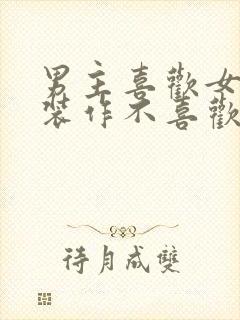 男主喜歡女
裝作不喜歡
待月成雙